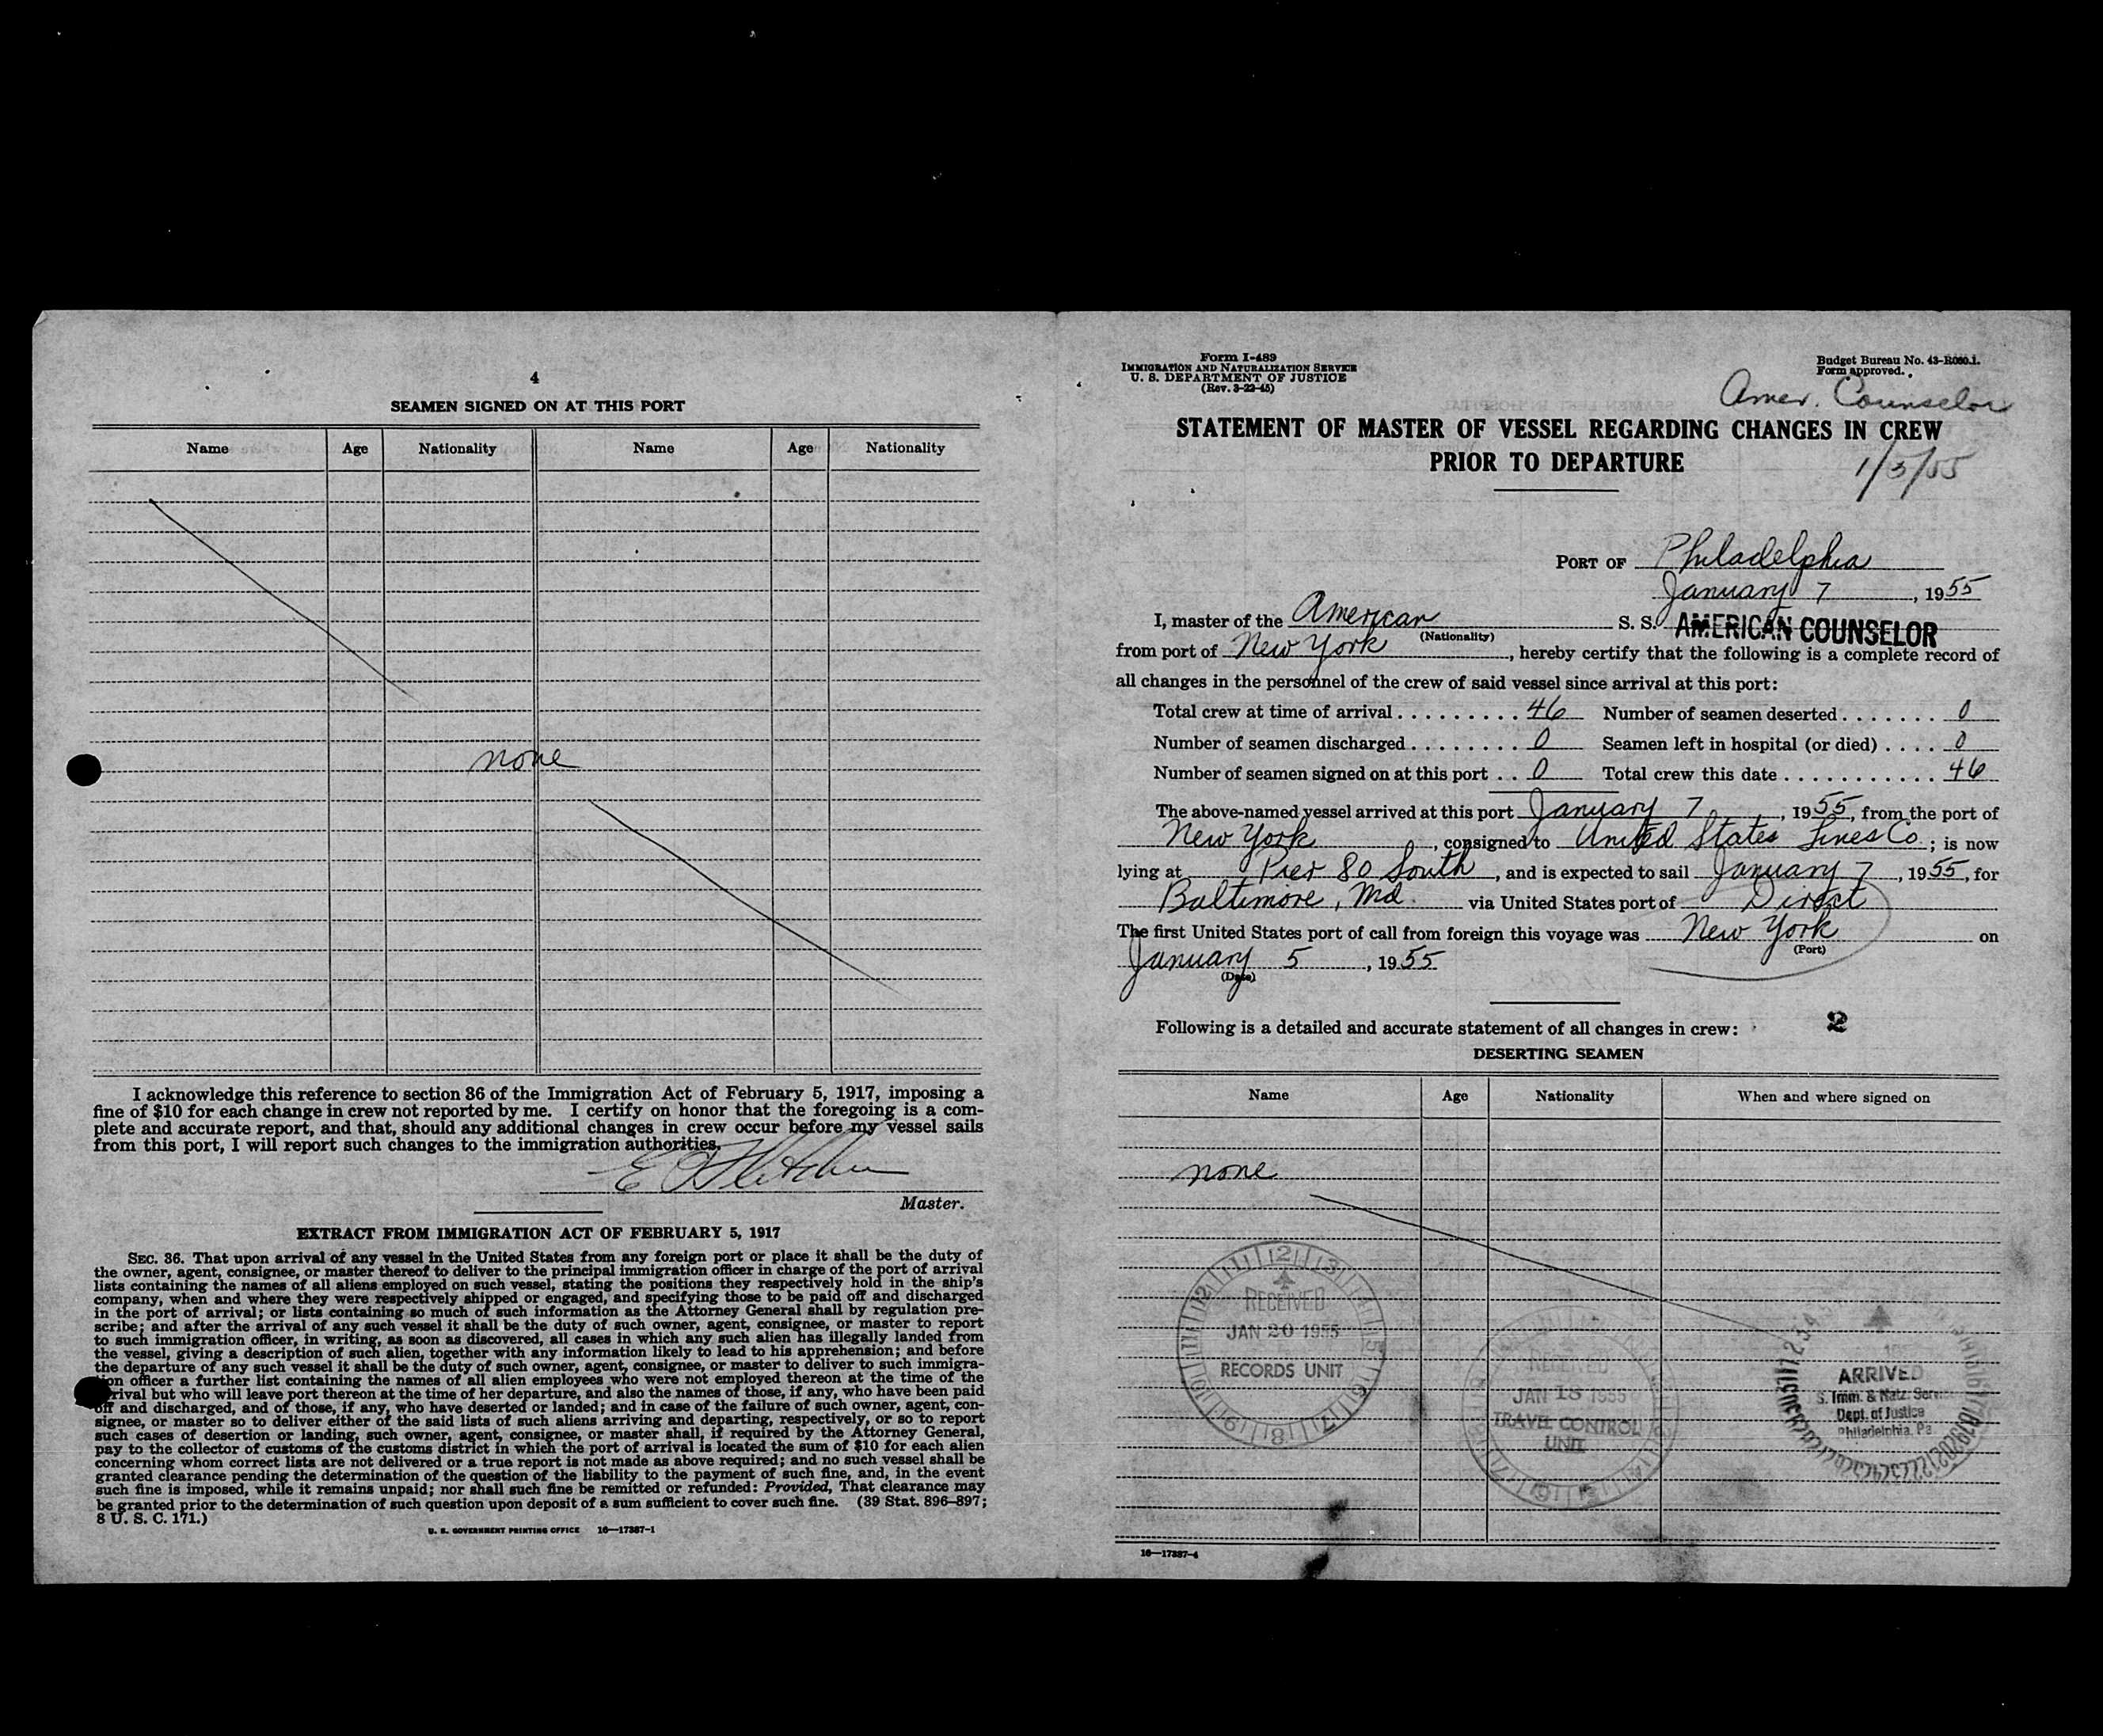 4
SEAMEN SIGNED ON AT THIS PORT
Name Age Nationality Name Age Nationality
none
I acknowledge this reference to section 36 of the Immigration Act of February 5, 1917, imposing a
fine of $10 for each change in crew not reported by me. I certify on honor that the foregoing is a com-
plete and accurate report, and that, should any additional changes in crew occur before my vessel sails
from this port, I will report such changes to the immigration authorities.
Master.
EXTRACT FROM IMMIGRATION ACT OF FEBRUARY 5, 1917
SEC. 36. That upon arrival of any vessel in the United States from any foreign port or place it shall be the duty of
the owner, agent, consignee, or master thereof to deliver to the principal immigration officer in charge of the port of arrival
lists containing the names of all aliens employed on such vessel, stating the positions they respectively hold in the ship's
company, when and where they were respectively shipped or engaged, and specifying those to be paid off and discharged
in the port of arrival; or lists containing so much of such information as the Attorney General shall by regulation pre-
scribe; and after the arrival of any such vessel it shall be the duty of such owner, agent, consignee, or master to report
to such immigration officer, in writing, as soon as discovered, all cases in which any such alien has illegally landed from
the vessel, giving a description of such alien, together with any information likely to lead to his apprehension; and before
the departure of any such vessel it shall be the duty of such owner, agent, consignee, or master to deliver to such immigra-
tion officer a further list containing the names of all alien employees who were not employed thereon at the time of the
arrival but who will leave port thereon at the time of her departure, and also the names of those, if any, who have been paid
off and discharged, and of those, if any, who have deserted or landed; and in case of the failure of such owner, agent, con-
signee, or master so to deliver either of the said lists of such aliens arriving and departing, respectively, or so to report
such cases of desertion or landing, such owner, agent, consignee, or master shall, if required by the Attorney General,
pay to the collector of customs of the customs district in which the port of arrival is located the sum of $10 for each alien
concerning whom correct lists are not delivered or a true report is not made as above required; and no such vessel shall be
granted clearance pending the determination of the question of the liability to the payment of such fine, and, in the event
such fine is imposed, while it remains unpaid; nor shall such fine be remitted or refunded: Provided, That clearance may
be granted prior to the determination of such question upon deposit of a sum sufficient to cover such fine. (39 Stat. 896–897;
8 U. S. C. 171.)
U. S. GOVERNMENT PRINTING OFFICE 16—17387-1
Form I-489
IMMIGRATION AND NATURALIZATION SERVICE
U. S. DEPARTMENT OF JUSTICE
(Rev. 3-22-45)
Budget Bureau No. 43-R080.1.
Form approved.
Amer. Counselor
STATEMENT OF MASTER OF VESSEL REGARDING CHANGES IN CREW
PRIOR TO DEPARTURE
1/5/55
PORT OF Philadelphia
January 7, 1955
I, master of the American S. S. AMERICAN COUNSELOR
(Nationality)
from port of New York, hereby certify that the following is a complete record of
all changes in the personnel of the crew of said vessel since arrival at this port:
Total crew at time of arrival . . . . . . . . . 46 Number of seamen deserted . . . . . . . 0
Number of seamen discharged . . . . . . . . 0 Seamen left in hospital (or died) . . . . 0
Number of seamen signed on at this port . . 0 Total crew this date . . . . . . . . . . . 46
The above-named vessel arrived at this port January 7, 1955, from the port of
New York, consigned to United States Lines Co; is now
lying at Pier 80 South, and is expected to sail January 7, 1955, for
Baltimore, Md. via United States port of Direct
The first United States port of call from foreign this voyage was New York on
(Port)
January 5, 1955
(Date)
Following is a detailed and accurate statement of all changes in crew:
2
DESERTING SEAMEN
Name Age Nationality When and where signed on
none
RECEIVED
JAN 20 1955
RECORDS UNIT
RECEIVED
JAN 18 1955
TRAVEL CONTROL
UNIT
ARRIVED
S. Imm. & Natz. Serv
Dept. of Justice
Philadelphia, Pa.
16—17387-4